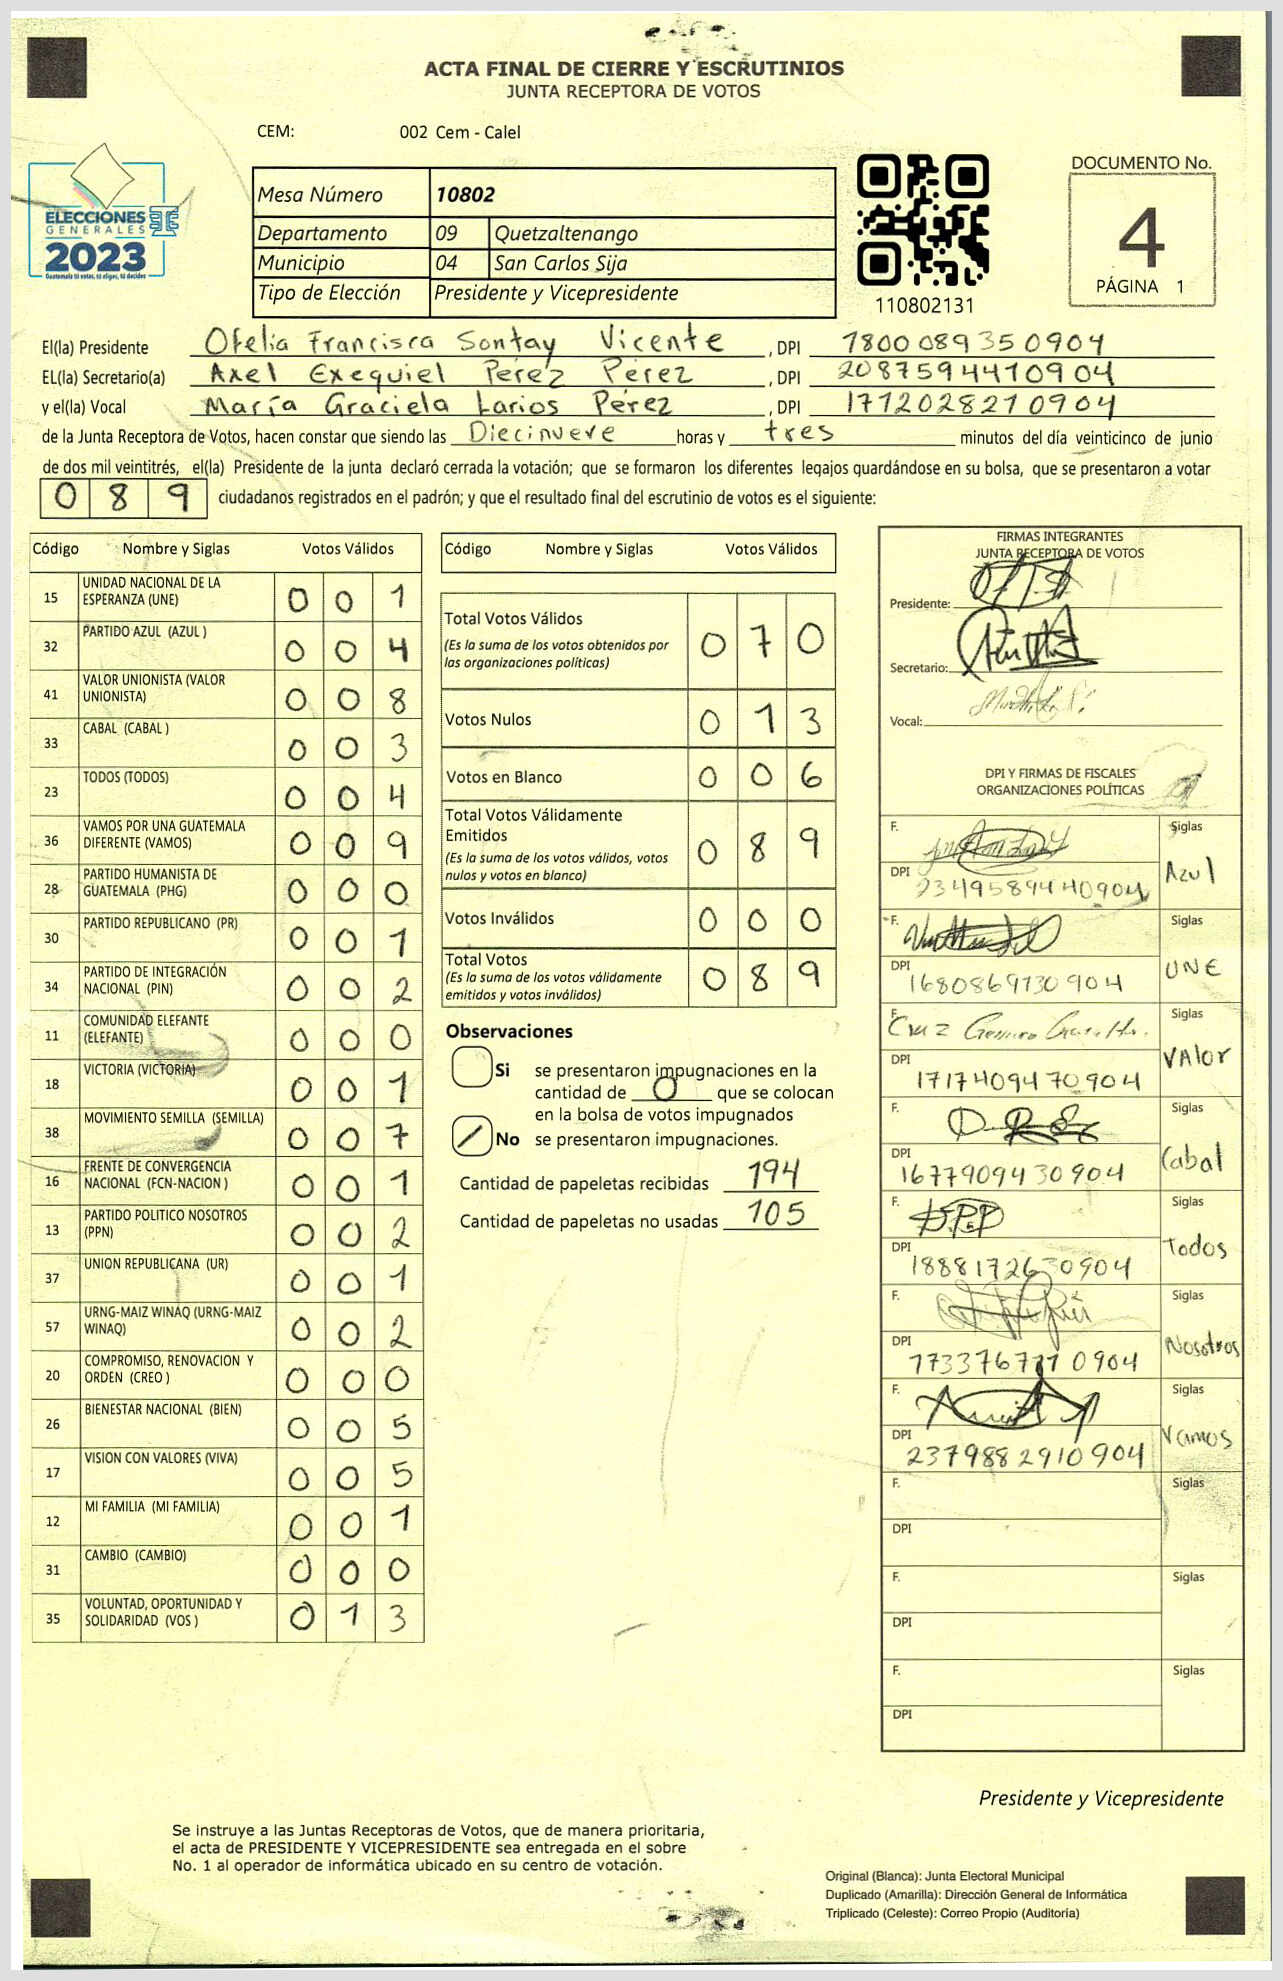 ACTA FINAL DE CIERRE Y ESCRUTINIOS
JUNTA RECEPTORA DE VOTOS
CEM: 002 Cem - Calel
ELECCIONES
GENERALES
2023
Guatemala tú votas, tú eliges, tú decides
Mesa Número 10802
Departamento 09 Quetzaltenango
Municipio 04 San Carlos Sija
Tipo de Elección Presidente y Vicepresidente
110802131
DOCUMENTO No.
4
PÁGINA 1
El(la) Presidente Ofelia Francisca Sontay Vicente , DPI 1800089350904
EL(la) Secretario(a) Axel Exequiel Perez Pérez , DPI 2087594410904
y el(la) Vocal María Graciela Larios Pérez , DPI 1712028210904
de la Junta Receptora de Votos, hacen constar que siendo las Diecinueve horas y tres minutos del día veinticinco de junio
de dos mil veintitrés, el(la) Presidente de la junta declaró cerrada la votación; que se formaron los diferentes legajos guardándose en su bolsa, que se presentaron a votar
0 8 9 ciudadanos registrados en el padrón; y que el resultado final del escrutinio de votos es el siguiente:
Código Nombre y Siglas Votos Válidos
15 UNIDAD NACIONAL DE LA ESPERANZA (UNE) 0 0 1
32 PARTIDO AZUL (AZUL ) 0 0 4
41 VALOR UNIONISTA (VALOR UNIONISTA) 0 0 8
33 CABAL (CABAL ) 0 0 3
23 TODOS (TODOS) 0 0 4
36 VAMOS POR UNA GUATEMALA DIFERENTE (VAMOS) 0 0 9
28 PARTIDO HUMANISTA DE GUATEMALA (PHG) 0 0 0
30 PARTIDO REPUBLICANO (PR) 0 0 1
34 PARTIDO DE INTEGRACIÓN NACIONAL (PIN) 0 0 2
11 COMUNIDAD ELEFANTE (ELEFANTE) 0 0 0
18 VICTORIA (VICTORIA) 0 0 1
38 MOVIMIENTO SEMILLA (SEMILLA) 0 0 7
16 FRENTE DE CONVERGENCIA NACIONAL (FCN-NACION ) 0 0 1
13 PARTIDO POLITICO NOSOTROS (PPN) 0 0 2
37 UNION REPUBLICANA (UR) 0 0 1
57 URNG-MAIZ WINAQ (URNG-MAIZ WINAQ) 0 0 2
20 COMPROMISO, RENOVACION Y ORDEN (CREO ) 0 0 0
26 BIENESTAR NACIONAL (BIEN) 0 0 5
17 VISION CON VALORES (VIVA) 0 0 5
12 MI FAMILIA (MI FAMILIA) 0 0 1
31 CAMBIO (CAMBIO) 0 0 0
35 VOLUNTAD, OPORTUNIDAD Y SOLIDARIDAD (VOS ) 0 1 3
Código Nombre y Siglas Votos Válidos
Total Votos Válidos 0 7 0
(Es la suma de los votos obtenidos por
las organizaciones políticas)
Votos Nulos 0 1 3
Votos en Blanco 0 0 6
Total Votos Válidamente
Emitidos 0 8 9
(Es la suma de los votos válidos, votos
nulos y votos en blanco)
Votos Inválidos 0 0 0
Total Votos 0 8 9
(Es la suma de los votos válidamente
emitidos y votos inválidos)
Observaciones
Si se presentaron impugnaciones en la
cantidad de 0 que se colocan
en la bolsa de votos impugnados
No se presentaron impugnaciones.
Cantidad de papeletas recibidas 194
Cantidad de papeletas no usadas 105
FIRMAS INTEGRANTES
JUNTA RECEPTORA DE VOTOS
Presidente:
Secretario:
Vocal:
DPI Y FIRMAS DE FISCALES
ORGANIZACIONES POLÍTICAS
F. Siglas
DPI 2349589440904 Azul
F. Siglas
DPI 1680869730904 UNE
F. Cruz Siglas
DPI 1717409470904 VAlor
F. Siglas
DPI 1677909430904 Cabal
F. Siglas
DPI 1888172630904 Todos
F. Siglas
DPI Nosotros
F. Siglas
DPI 2379882910904 Vamos
F. Siglas
DPI
F. Siglas
DPI
F. Siglas
DPI
Presidente y Vicepresidente
Se instruye a las Juntas Receptoras de Votos, que de manera prioritaria,
el acta de PRESIDENTE Y VICEPRESIDENTE sea entregada en el sobre
No. 1 al operador de informática ubicado en su centro de votación.
Original (Blanca): Junta Electoral Municipal
Duplicado (Amarilla): Dirección General de Informática
Triplicado (Celeste): Correo Propio (Auditoría)